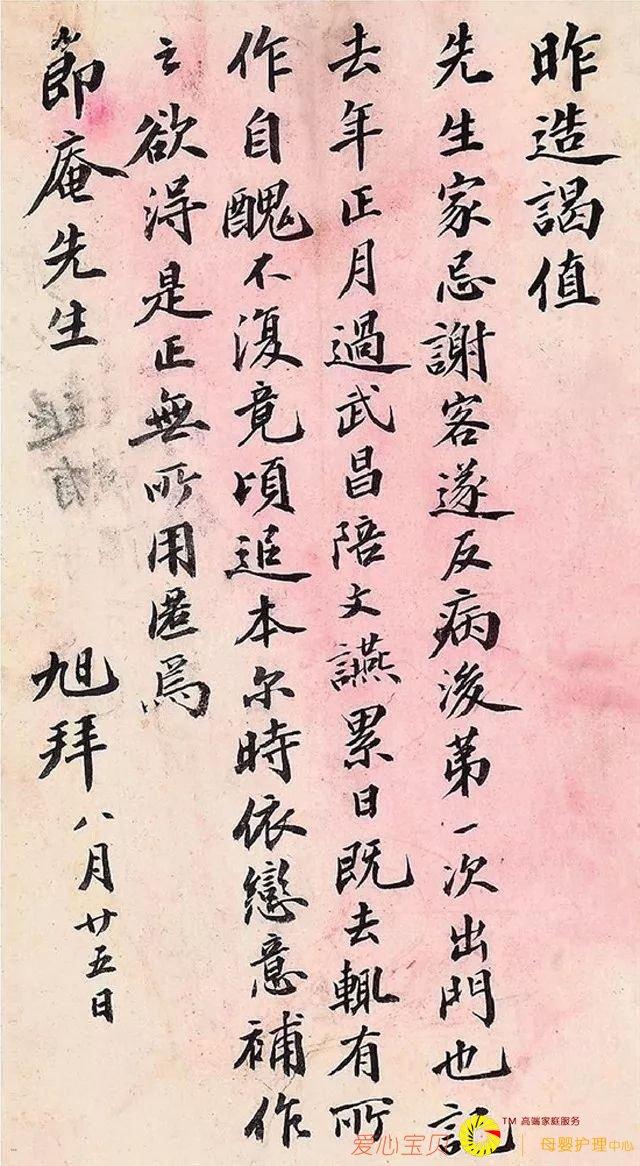 昨造謁值
先生家忌謝客遂反病後苐一次出門也記
去年正月過武昌陪文讌累日既去輒有所
作自醜不復竟頃追本尔時依戀意補作
之欲得是正無所用匿焉
節庵先生
旭拜八月廿五日
TM 高端家庭服务
爱心宝贝 母婴护理中心